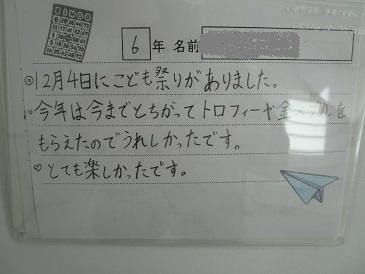 BINGO
6 年 名前
◎12月4日にこども祭りがありました。
今年は今までとちがってトロフィーや金メダルを
もらえたのでうれしかったです。
♡とても楽しかったです。